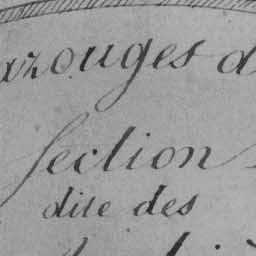 azouges d
Section
dite des